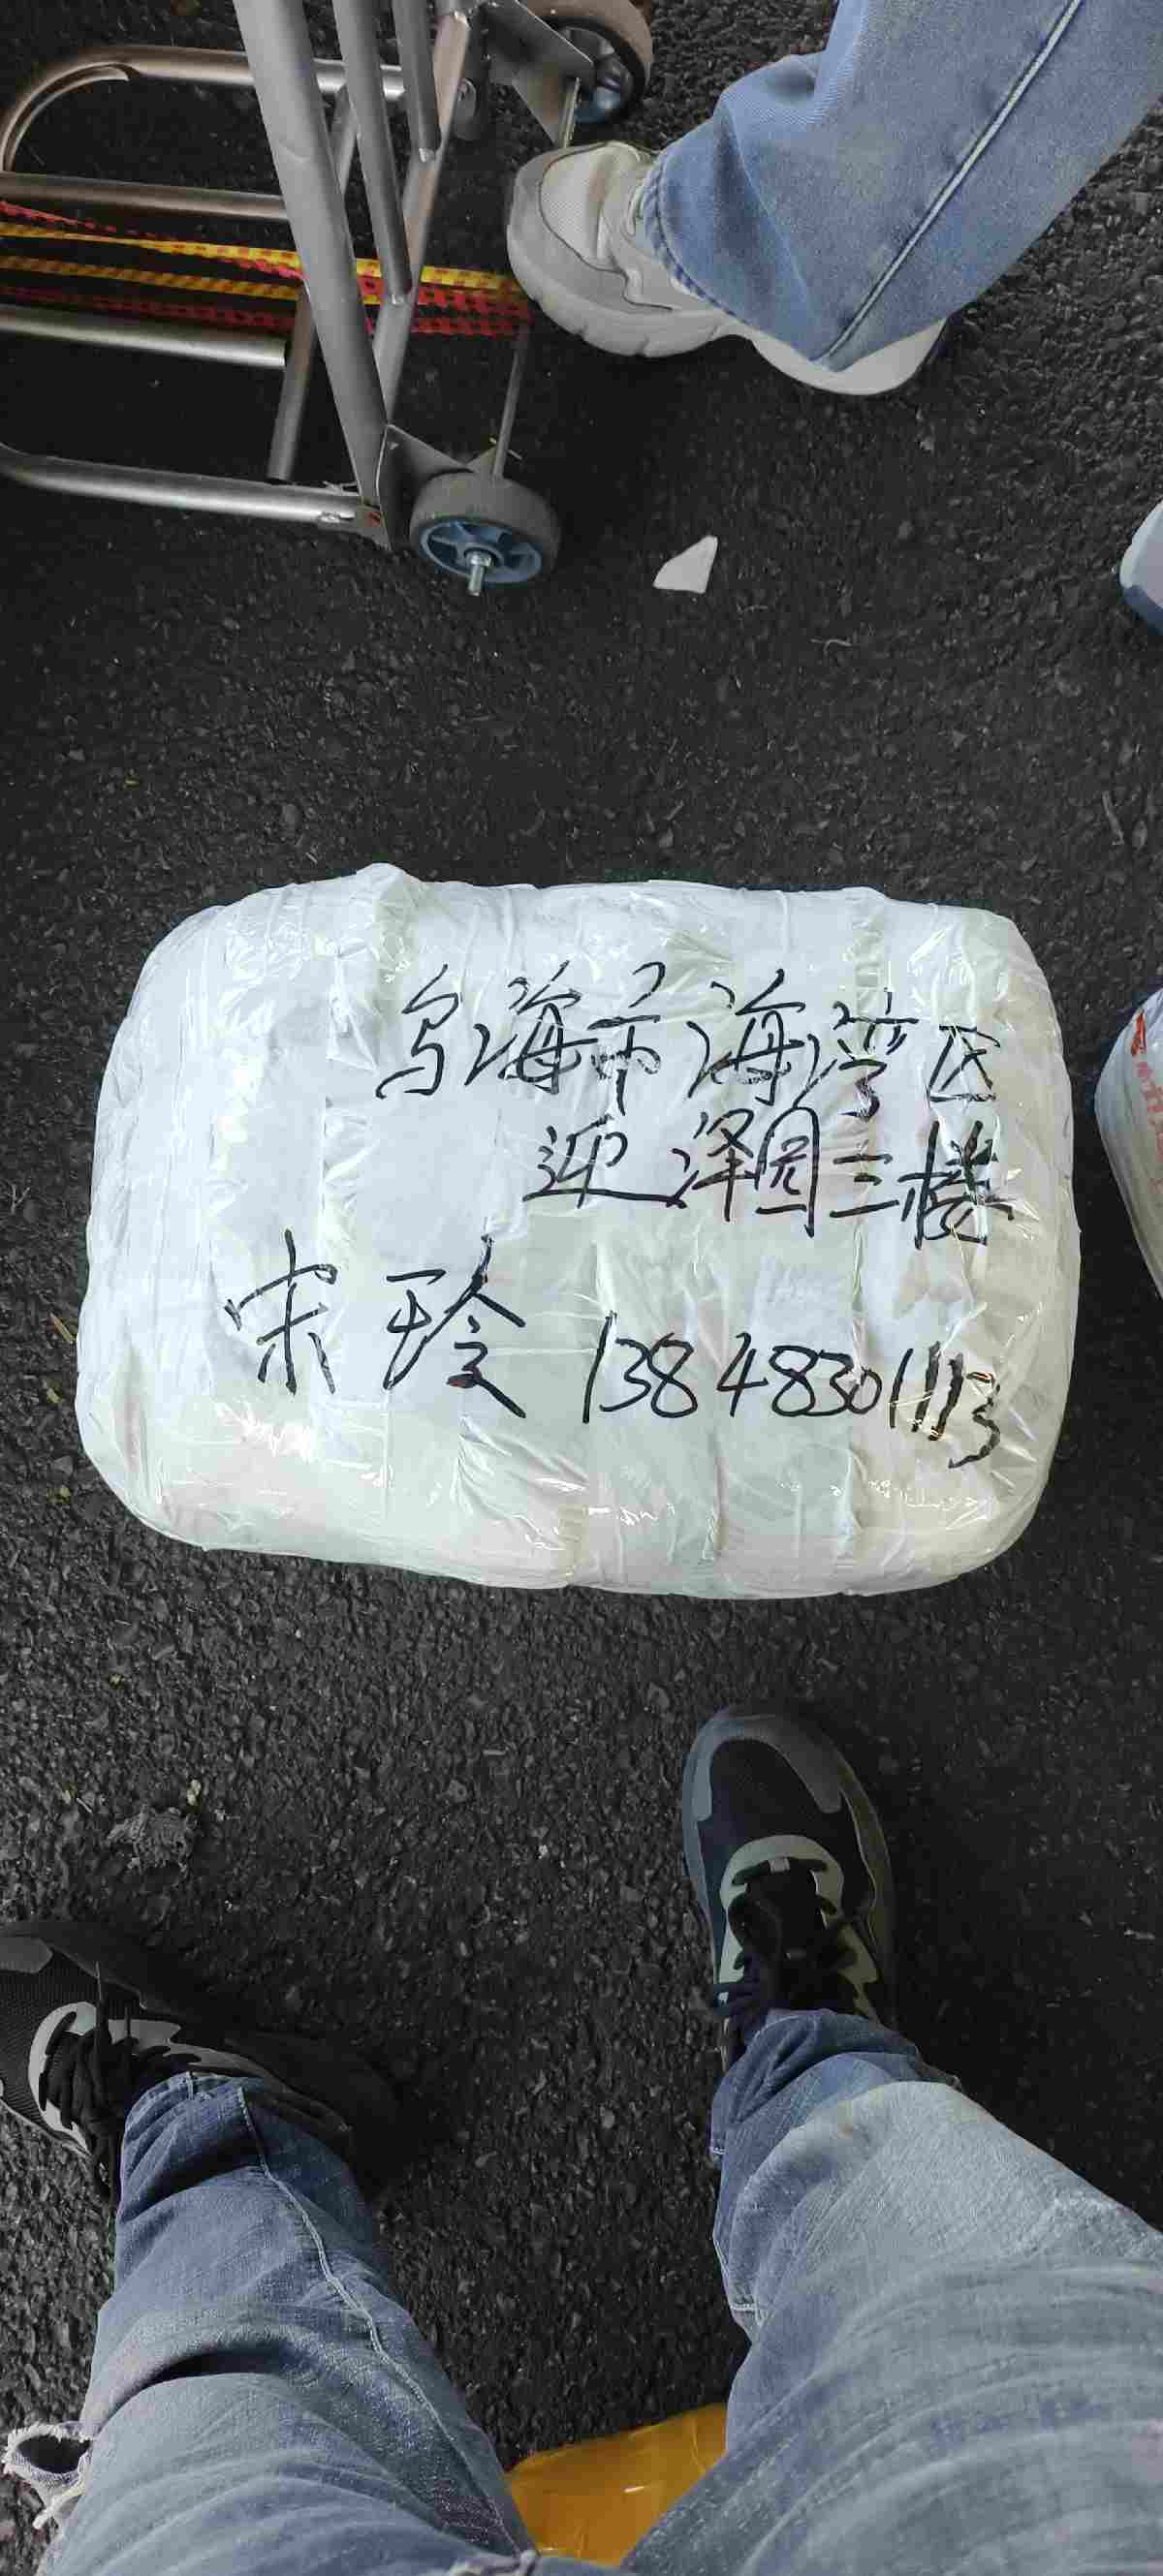 乌海市海湾区
迎泽园三楼
宋玲 13848301113